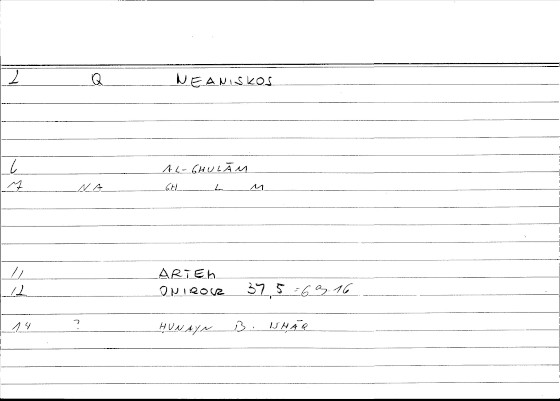 2 Q NEANISKOS
6 AL-GHULĀM
7 NA GH L M
11 ARTEM
12 ONIROCR 37,5 = 69 16
14 ? HUNAYN B. ISHĀQ